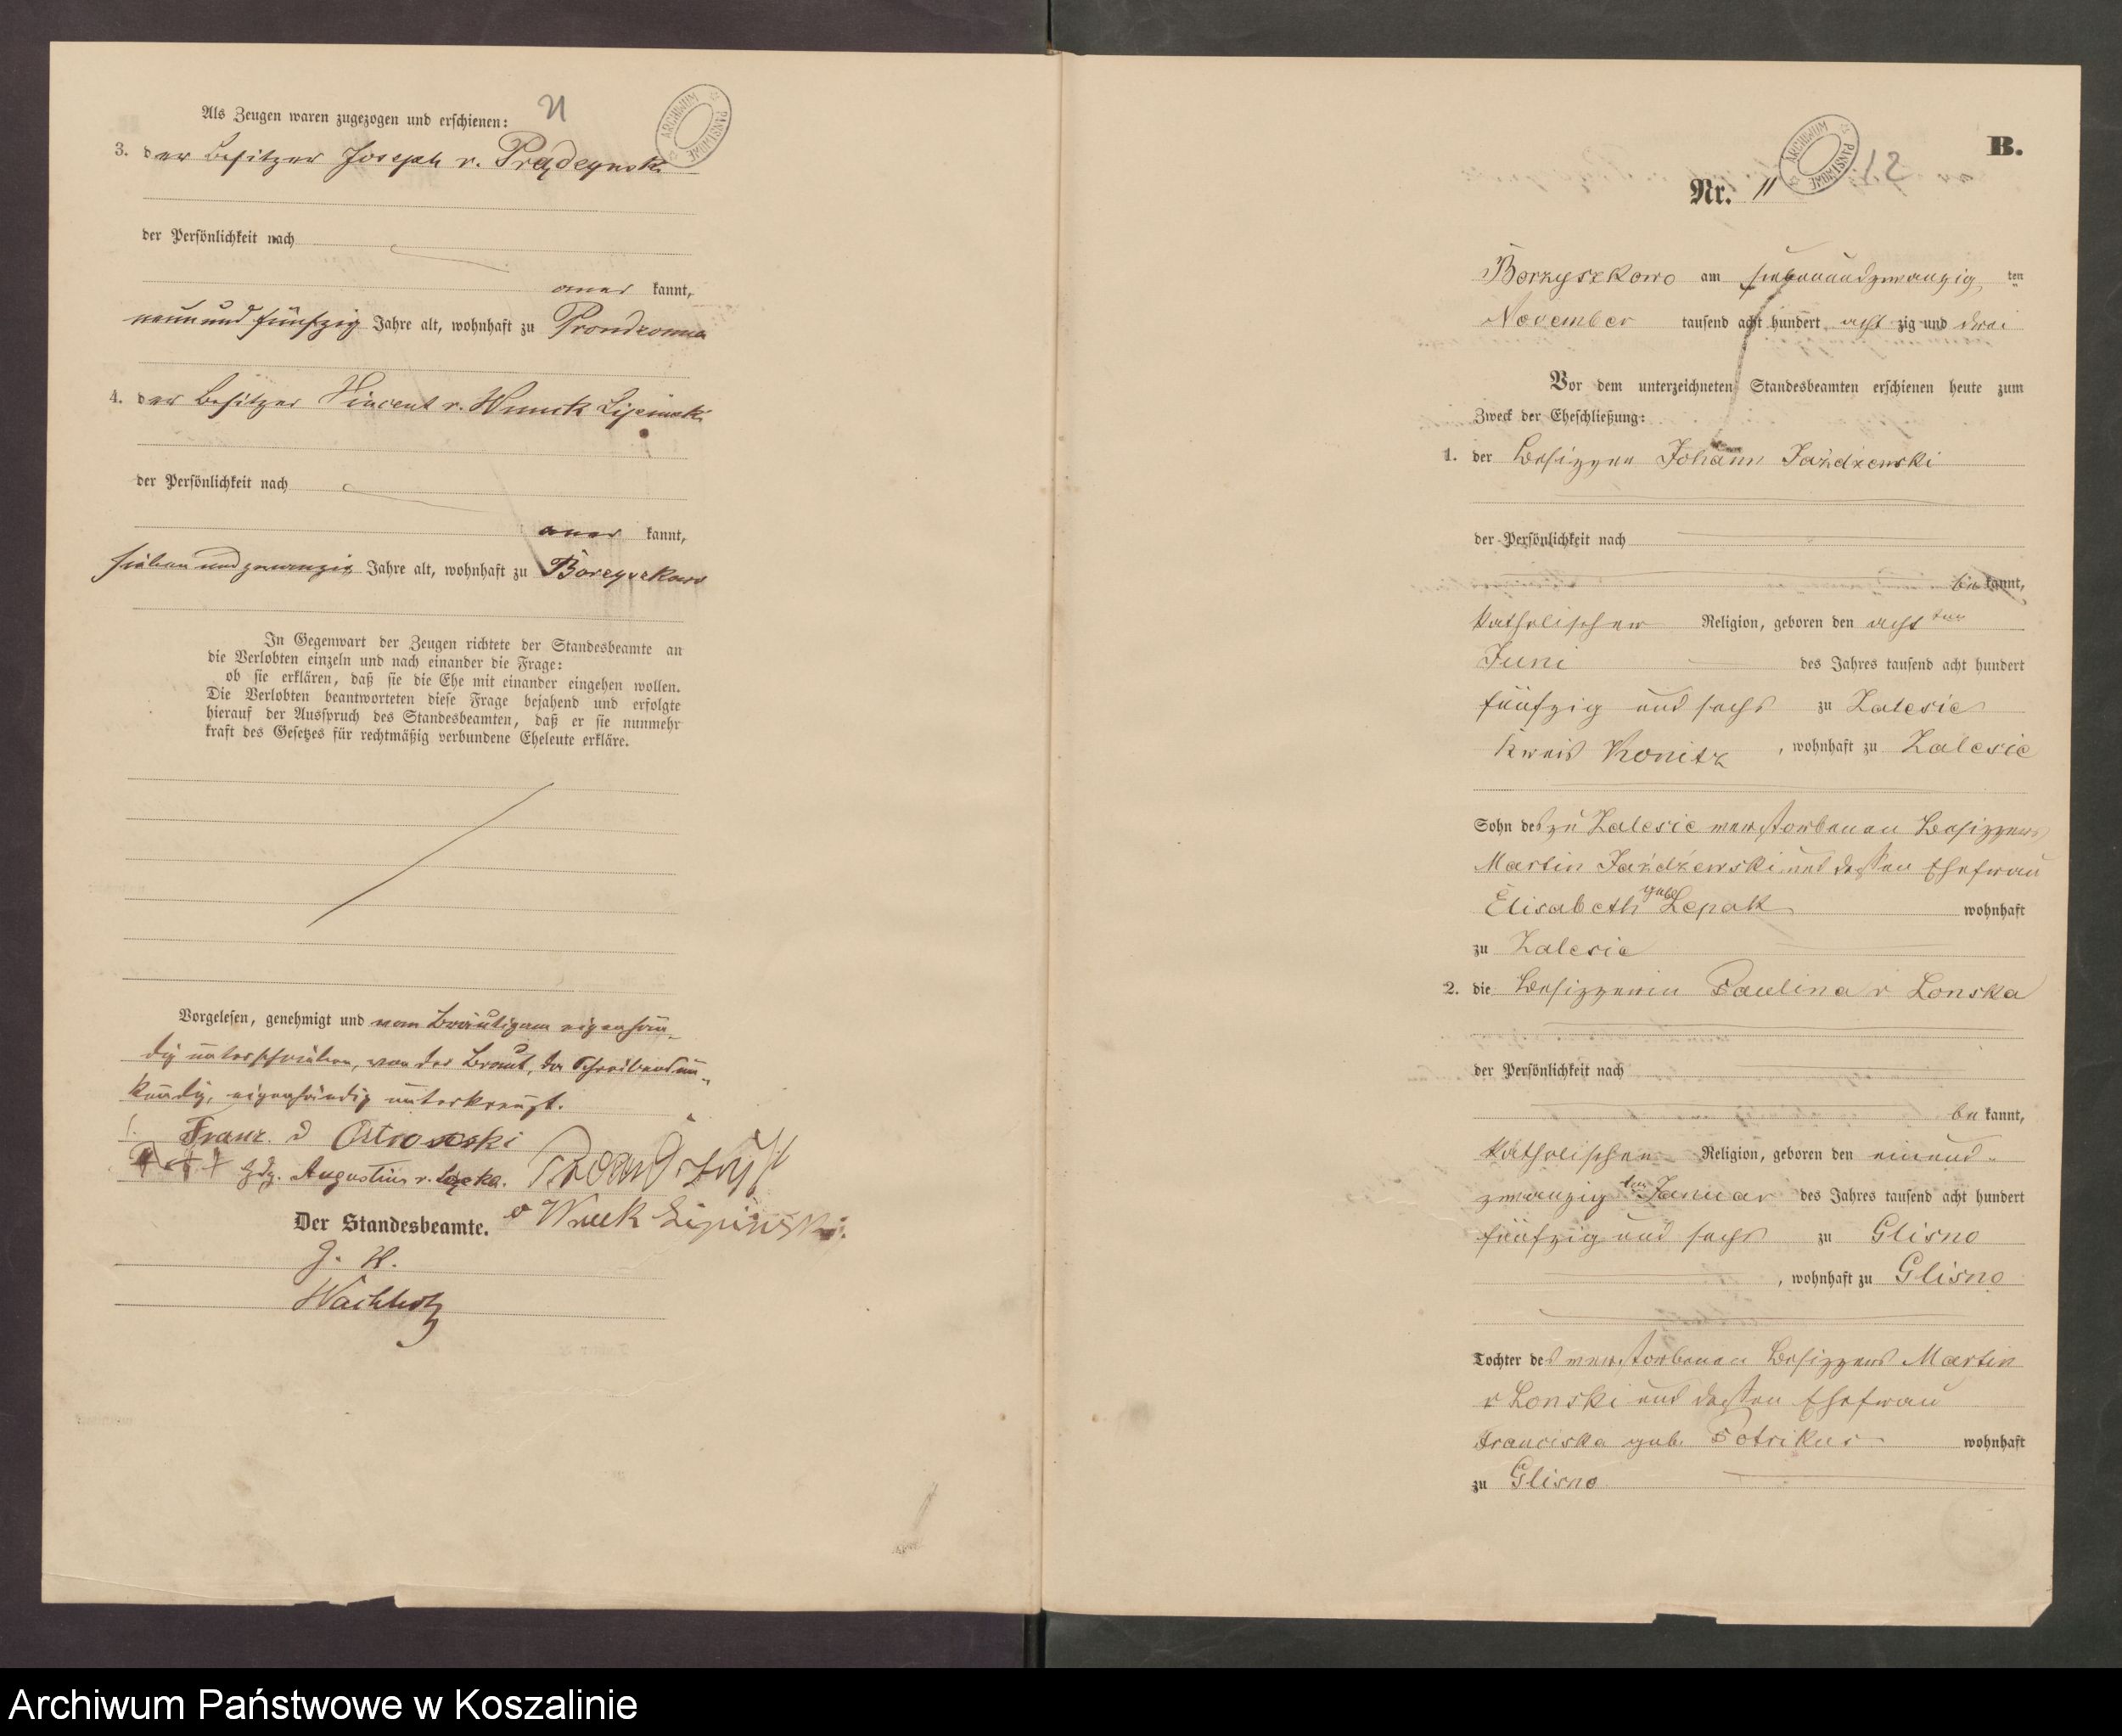 Als Zeugen waren zugezogen und erschienen:
21
ARCHIWUM PAŃSTWOWE
3. der Besitzer Joseph v. Prądzynski
der Persönlichkeit nach
aner kannt,
neun und fünfzig Jahre alt, wohnhaft zu Prondzonna
4. der Besitzer Vincent v. Wnuck Lipinski
der Persönlichkeit nach
aner kannt,
sieben und zwanzig Jahre alt, wohnhaft zu Borzyszkowo
In Gegenwart der Zeugen richtete der Standesbeamte an
die Verlobten einzeln und nach einander die Frage:
ob sie erklären, daß sie die Ehe mit einander eingehen wollen.
Die Verlobten beantworteten diese Frage bejahend und erfolgte
hierauf der Ausspruch des Standesbeamten, daß er sie nunmehr
kraft des Gesetzes für rechtmäßig verbundene Eheleute erkläre.
Vorgelesen, genehmigt und vom Bräutigam eigenhän-
dig unterschrieben, von der Braut, da Schreibensun-
kundig, eigenhändig unterkreuzt.
Franz. v Ostrowski
+++ Augustina v.
v Wnuk Lipinski
Der Standesbeamte.
J. V.
Wachholz
B.
ARCHIWUM PAŃSTWOWE
12
Nr. 11
Borzyszkowo am siebenundzwanzig ten
November tausend acht hundert acht zig und drei
Vor dem unterzeichneten Standesbeamten erschienen heute zum
Zweck der Eheschließung:
1. der Besizzer Johann Jażdżewski
der Persönlichkeit nach
be kannt,
katholischer Religion, geboren den acht ten
Juni des Jahres tausend acht hundert
fünfzig und sechs zu Zalesie
Kreis Konitz , wohnhaft zu Zalesie
Sohn des zu Zalesie verstorbenen Besizzers
Martin Jażdżewski und dessen Ehefrau
Elisabeth geb Lepak wohnhaft
zu Zalesie
2. die Besizzerin Paulina v Lonska
der Persönlichkeit nach
be kannt,
katholischer Religion, geboren den einund-
zwanzig ten Januar des Jahres tausend acht hundert
fünfzig und sechs zu Glisno
, wohnhaft zu Glisno
Tochter des verstorbenen Besizzers Martin
v Lonski und dessen Ehefrau
Franciska geb. Potrikus wohnhaft
zu Glisno
Archiwum Państwowe w Koszalinie